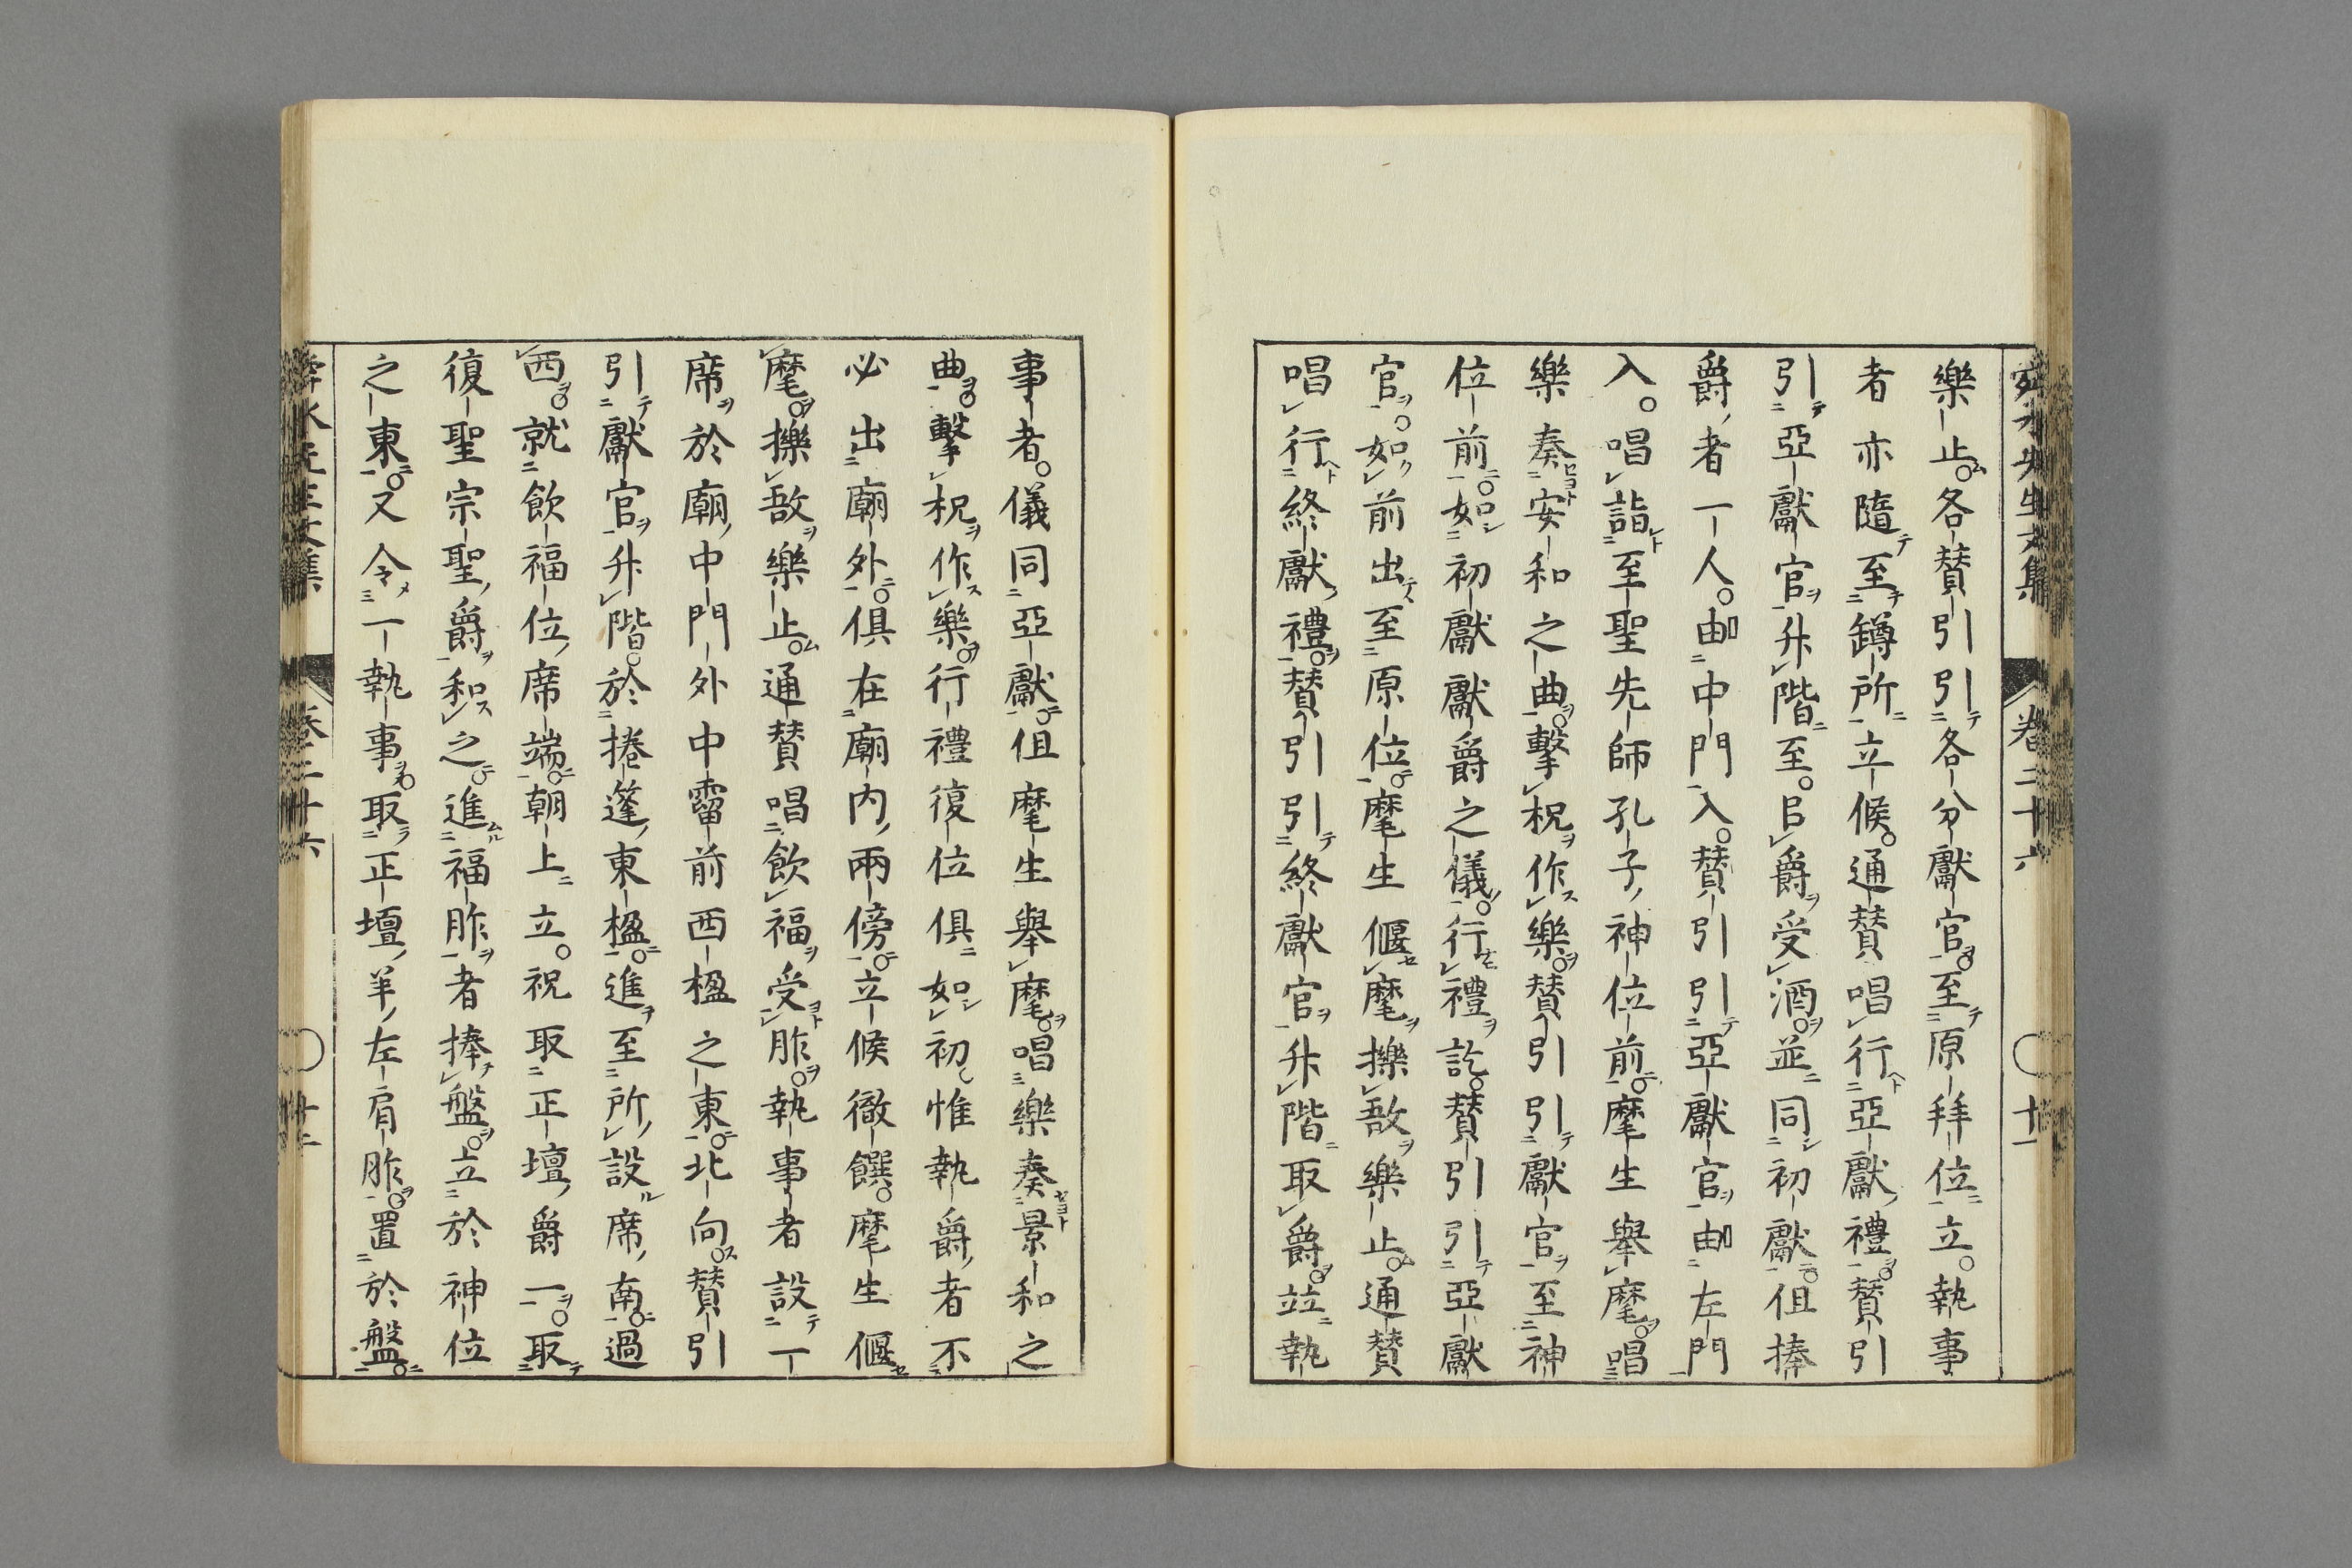 舜水先生文集 卷二十六 十一
樂止。各贊引引各分獻官。至原拜位立。執事
者亦隨至罇所立候。通贊唱行亞獻禮。贊引
引亞獻官升階至。㠯爵受酒。並同初獻。但捧
爵者一人。由中門入。贊引引亞獻官由左門
入。唱詣至聖先師孔子神位前。麾生舉麾。唱
樂奏安和之曲。擊柷作樂。贊引引獻官至神
位前。如初獻獻爵之儀。行禮訖。贊引引亞獻
官。如前出至原位。麾生偃麾擽敔樂止。通贊
唱行終獻禮。贊引引終獻官升階取爵。竝執
事者。儀同亞獻。但麾生舉麾。唱樂奏景和之
曲。擊柷作樂。行禮復位俱如初。惟執爵者不
必出廟外。俱在廟内兩傍。立候徹饌。麾生偃
麾。擽敔樂止。通贊唱飲福受胙。執事者設一
席於廟中門外中霤前西楹之東。北向。贊引
引獻官升階。於捲篷東楹。進至所設席南。過
西。就飲福位席端。朝上立。祝取正壇爵一。取
復聖宗聖爵和之。進福胙者捧盤。立於神位
之東。又令一執事。取正壇羊左肩胙。置於盤。
舜水先生文集 卷二十六 十二